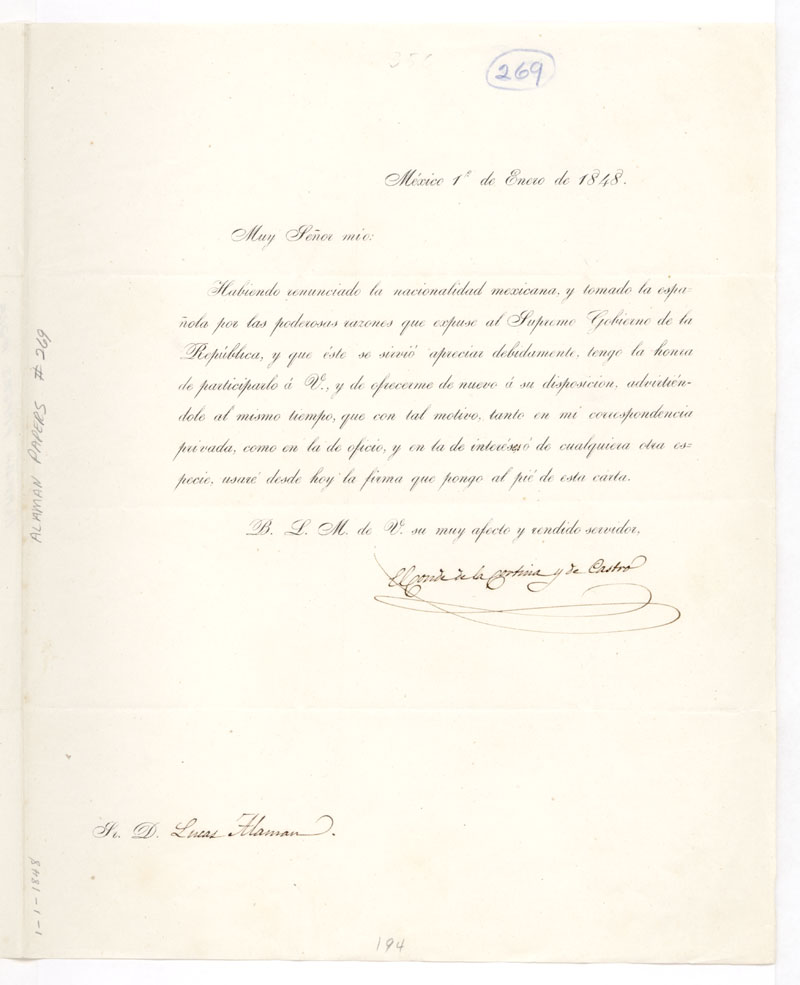 269
México 1º de Enero de 1848.
Muy Señor mio:
Habiendo renunciado la nacionalidad mexicana, y tomado la espa-
ñola por las poderosas razones que expuse al Supremo Gobierno de la
República, y que éste se sirvió apreciar debidamente, tengo la honra
de participarlo á V., y de ofrecerme de nuevo á su disposicion, advirtién-
dole al mismo tiempo, que con tal motivo, tanto en mi correspondencia
privada, como en la de oficio, y en la de interéses ó de cualquiera otra es-
pecie, usaré desde hoy la firma que pongo al pié de esta carta.
B. L. M. de V. su muy afecto y rendido servidor,
El Conde de la Cortina y de Castro
Sr. D. Lucas Alaman.
194
ALAMAN PAPERS # 269
1-1-1848